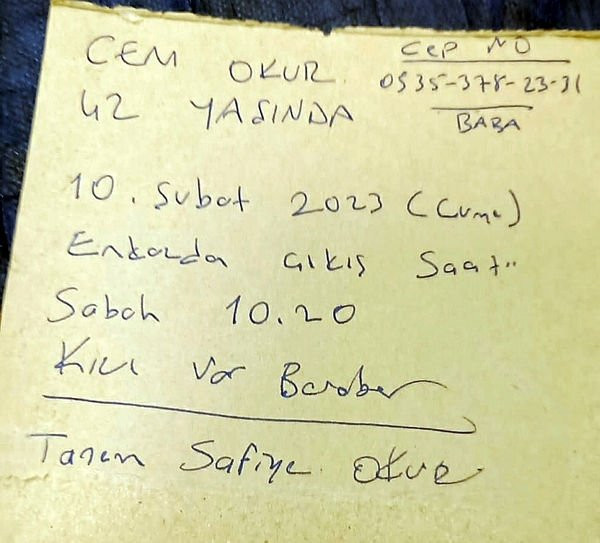 CEM OKUR
42 YAŞINDA
CEP NO
0535-378-23-31
BABA
10. Şubat 2023 (Cuma)
Enkazda çıkış Saati
Sabah 10.20
Kızı Var Beraber
Tanem Safiye OKUR